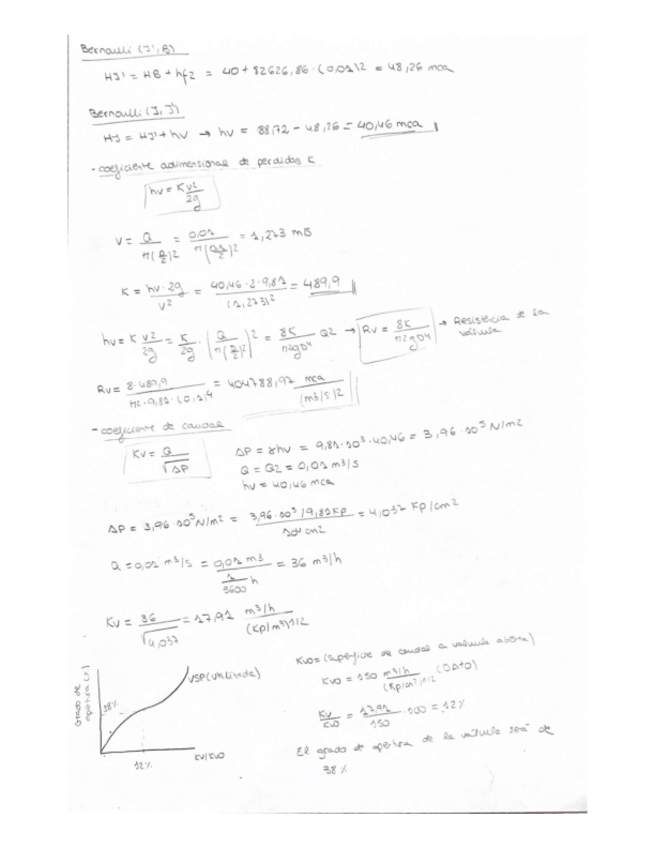 Bernoulli (J', B)
HJ' = HB + hf2 = 40 + 82626,86 · (0,01)2 = 48,26 mca
Bernoulli (J, J')
HJ = HJ' + hv → hv = 88,72 - 48,26 = 40,46 mca
- coeficiente adimensional de perdidas K
hv = K v2/2g
V = Q/π(D/2)2 = 0,01/π(0,1/2)2 = 1,273 m/s
K = hv·2g/v2 = 40,46·2·9,81/(1,273)2 = 489,9
hv = K v2/2g = K/2g · (Q/π(D/2)2)2 = 8K/π2gD4 Q2 → Rv = 8K/π2gD4 → Resistencia de la válvula
Rv = 8·489,9/π2·9,81·(0,1)4 = 404788,97 mca/(m3/s)2
- coeficiente de caudal
Kv = Q/√ΔP
ΔP = γhv = 9,81·103·40,46 = 3,96·105 N/m2
Q = Q2 = 0,01 m3/s
hv = 40,46 mca
ΔP = 3,96·105 N/m2 = 3,96·105/9,81 Kp/104 cm2 = 4,037 Kp/cm2
Q = 0,01 m3/s = 0,01 m3/(1/3600) h = 36 m3/h
Kv = 36/√4,037 = 17,91 m3/h/(Kp/m2)1/2
Kvo = (superficie de caudal a válvula abierta)
Kvo = 150 m3/h/(Kp/cm2)1/2 (DATO)
Kv/Kvo = 17,91/150 · 100 = 12%
El grado de apertura de la válvula será de
38%
Grado de apertura (%)
VSP (Utilizada)
38%
12%
KV/KVO